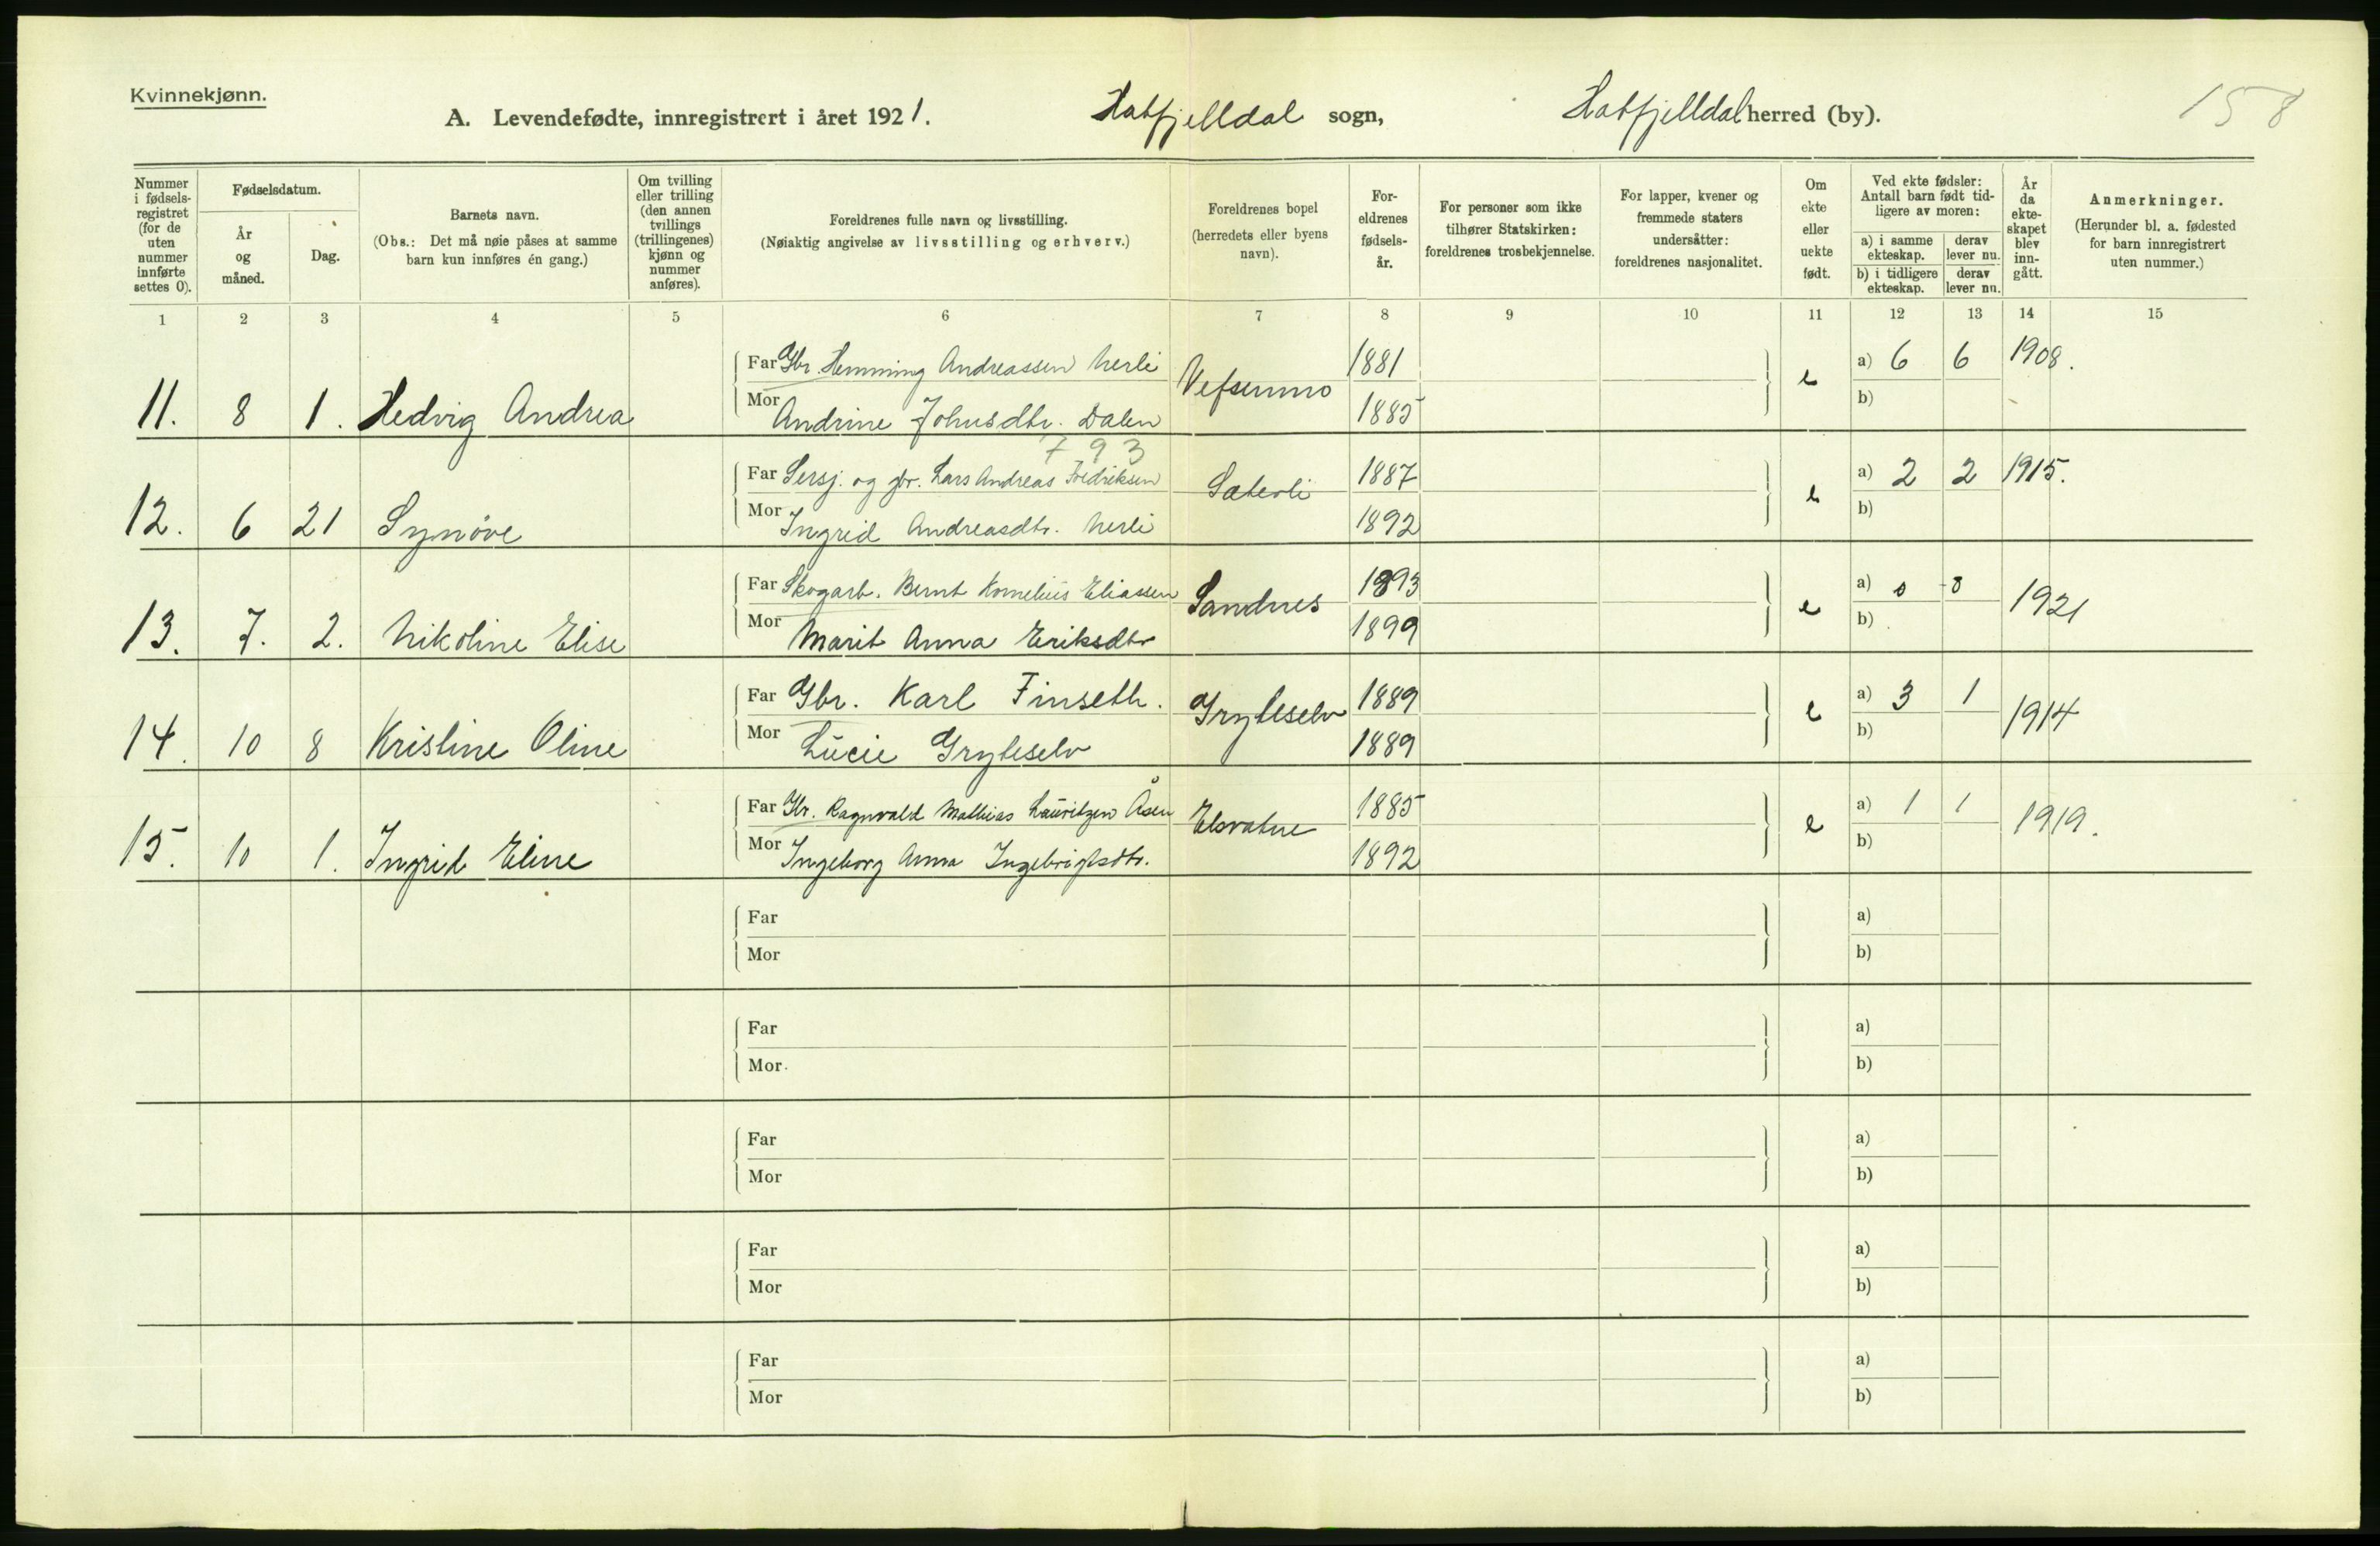 Kvinnekjønn.
A. Levendefødte, innregistrert i året 1921. Hatfjelldal sogn, Hatfjelldal herred (by). 158
Nummer i fødselsregistret (for de uten nummer innførte settes 0).
Fødselsdatum.
År og måned.
Dag.
Barnets navn.
(Obs.: Det må nøie påses at samme barn kun innføres én gang.)
Om tvilling eller trilling (den annen tvillings (trillingenes) kjønn og nummer anføres).
Foreldrenes fulle navn og livsstilling.
(Nøiaktig angivelse av livsstilling og erhverv.)
Foreldrenes bopel (herredets eller byens navn).
Foreldrenes fødselsår.
For personer som ikke tilhører Statskirken: foreldrenes trosbekjennelse.
For lapper, kvener og fremmede staters undersåtter: foreldrenes nasjonalitet.
Om ekte eller uekte født.
Ved ekte fødsler: Antall barn født tidligere av moren:
a) i samme ekteskap. derav lever nu.
b) i tidligere ekteskap. derav lever nu.
År da ekteskapet blev inngått.
Anmerkninger.
(Herunder bl. a. fødested for barn innregistrert uten nummer.)
1 2 3 4 5 6 7 8 9 10 11 12 13 14 15
Far Gbr. Hemming Andreassen Nerli 1881 a) 6 6 1908.
11. 8 1. Hedvig Andrea Vefsenmo e
Mor Andrine Johnsdtr. Dalen 1885 b)
793
Far Sersj. og gbr. Lars Andreas Fredriksen 1887 a) 2 2 1915.
12. 6 21 Synöve Sæterli e
Mor Ingrid Andreasdtr. Nerli 1892 b)
Far Skogarb. Bernt Kornelius Eliassen 1893 a) 0 0
13. 7. 2. Nikoline Elise Sandnes e 1921
Mor Marit Anna Eriksdtr 1899 b)
Far Gbr. Karl Finseth. 1889 a) 3 1
14. 10 8 Kristine Oline Gryteselv e 1914
Mor Lucie Gryteselv 1889 b)
Far Gbr. Ragnvald Mathias Lauritzen Åsen 1885 a) 1 1
15. 10 1. Ingrid Eline Elsvatne e 1919.
Mor Ingeborg Anna Ingebrigtsdtr. 1892 b)
Far a)
Mor b)
Far a)
Mor b)
Far a)
Mor b)
Far a)
Mor b)
Far a)
Mor b)